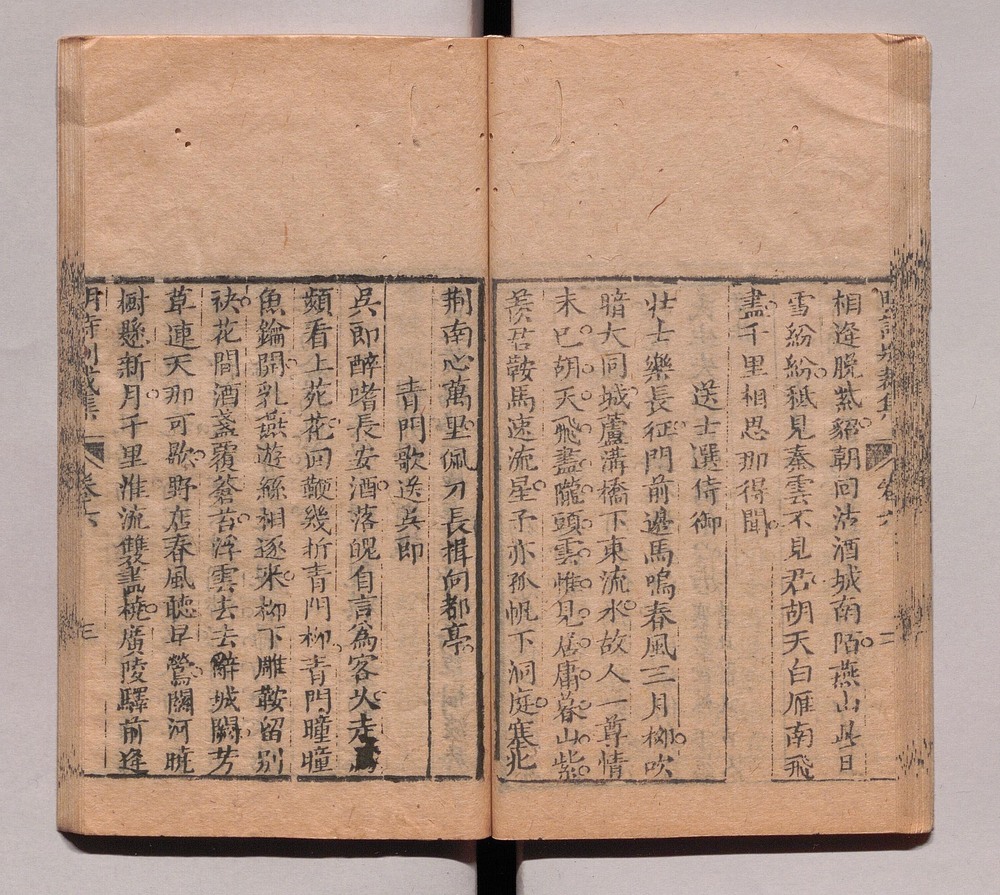 相逢脫裘貂朝回沽酒城南陌燕山此日
雪紛紛秪見秦雲不見君胡天白雁南飛
盡千里相思那得聞
送士選侍御
壯士樂長征門前邊馬鳴春風三月柳吹
暗大同城蘆溝橋下東流水故人一尊情
未巳胡天飛盡隴頭雲惟見居庸暮山紫
羨君鞍馬速流星予亦孤帆下洞庭塞北
荆南心萬里佩刀長揖向都亭
青門歌送吳郎
吳郎醉嗜長安酒落魄自言為客久走馬
頻看上苑花回鞭幾折青門柳青門曈曈
魚鑰開乳燕遊絲相逐來柳下雕鞍留別
袂花間酒盞覆蒼苔浮雲去去辭城闕芳
草連天那可歇野店春風聽早鶯關河曉
樹懸新月千里淮流雙畫橈廣陵驛前逢
卷六
三